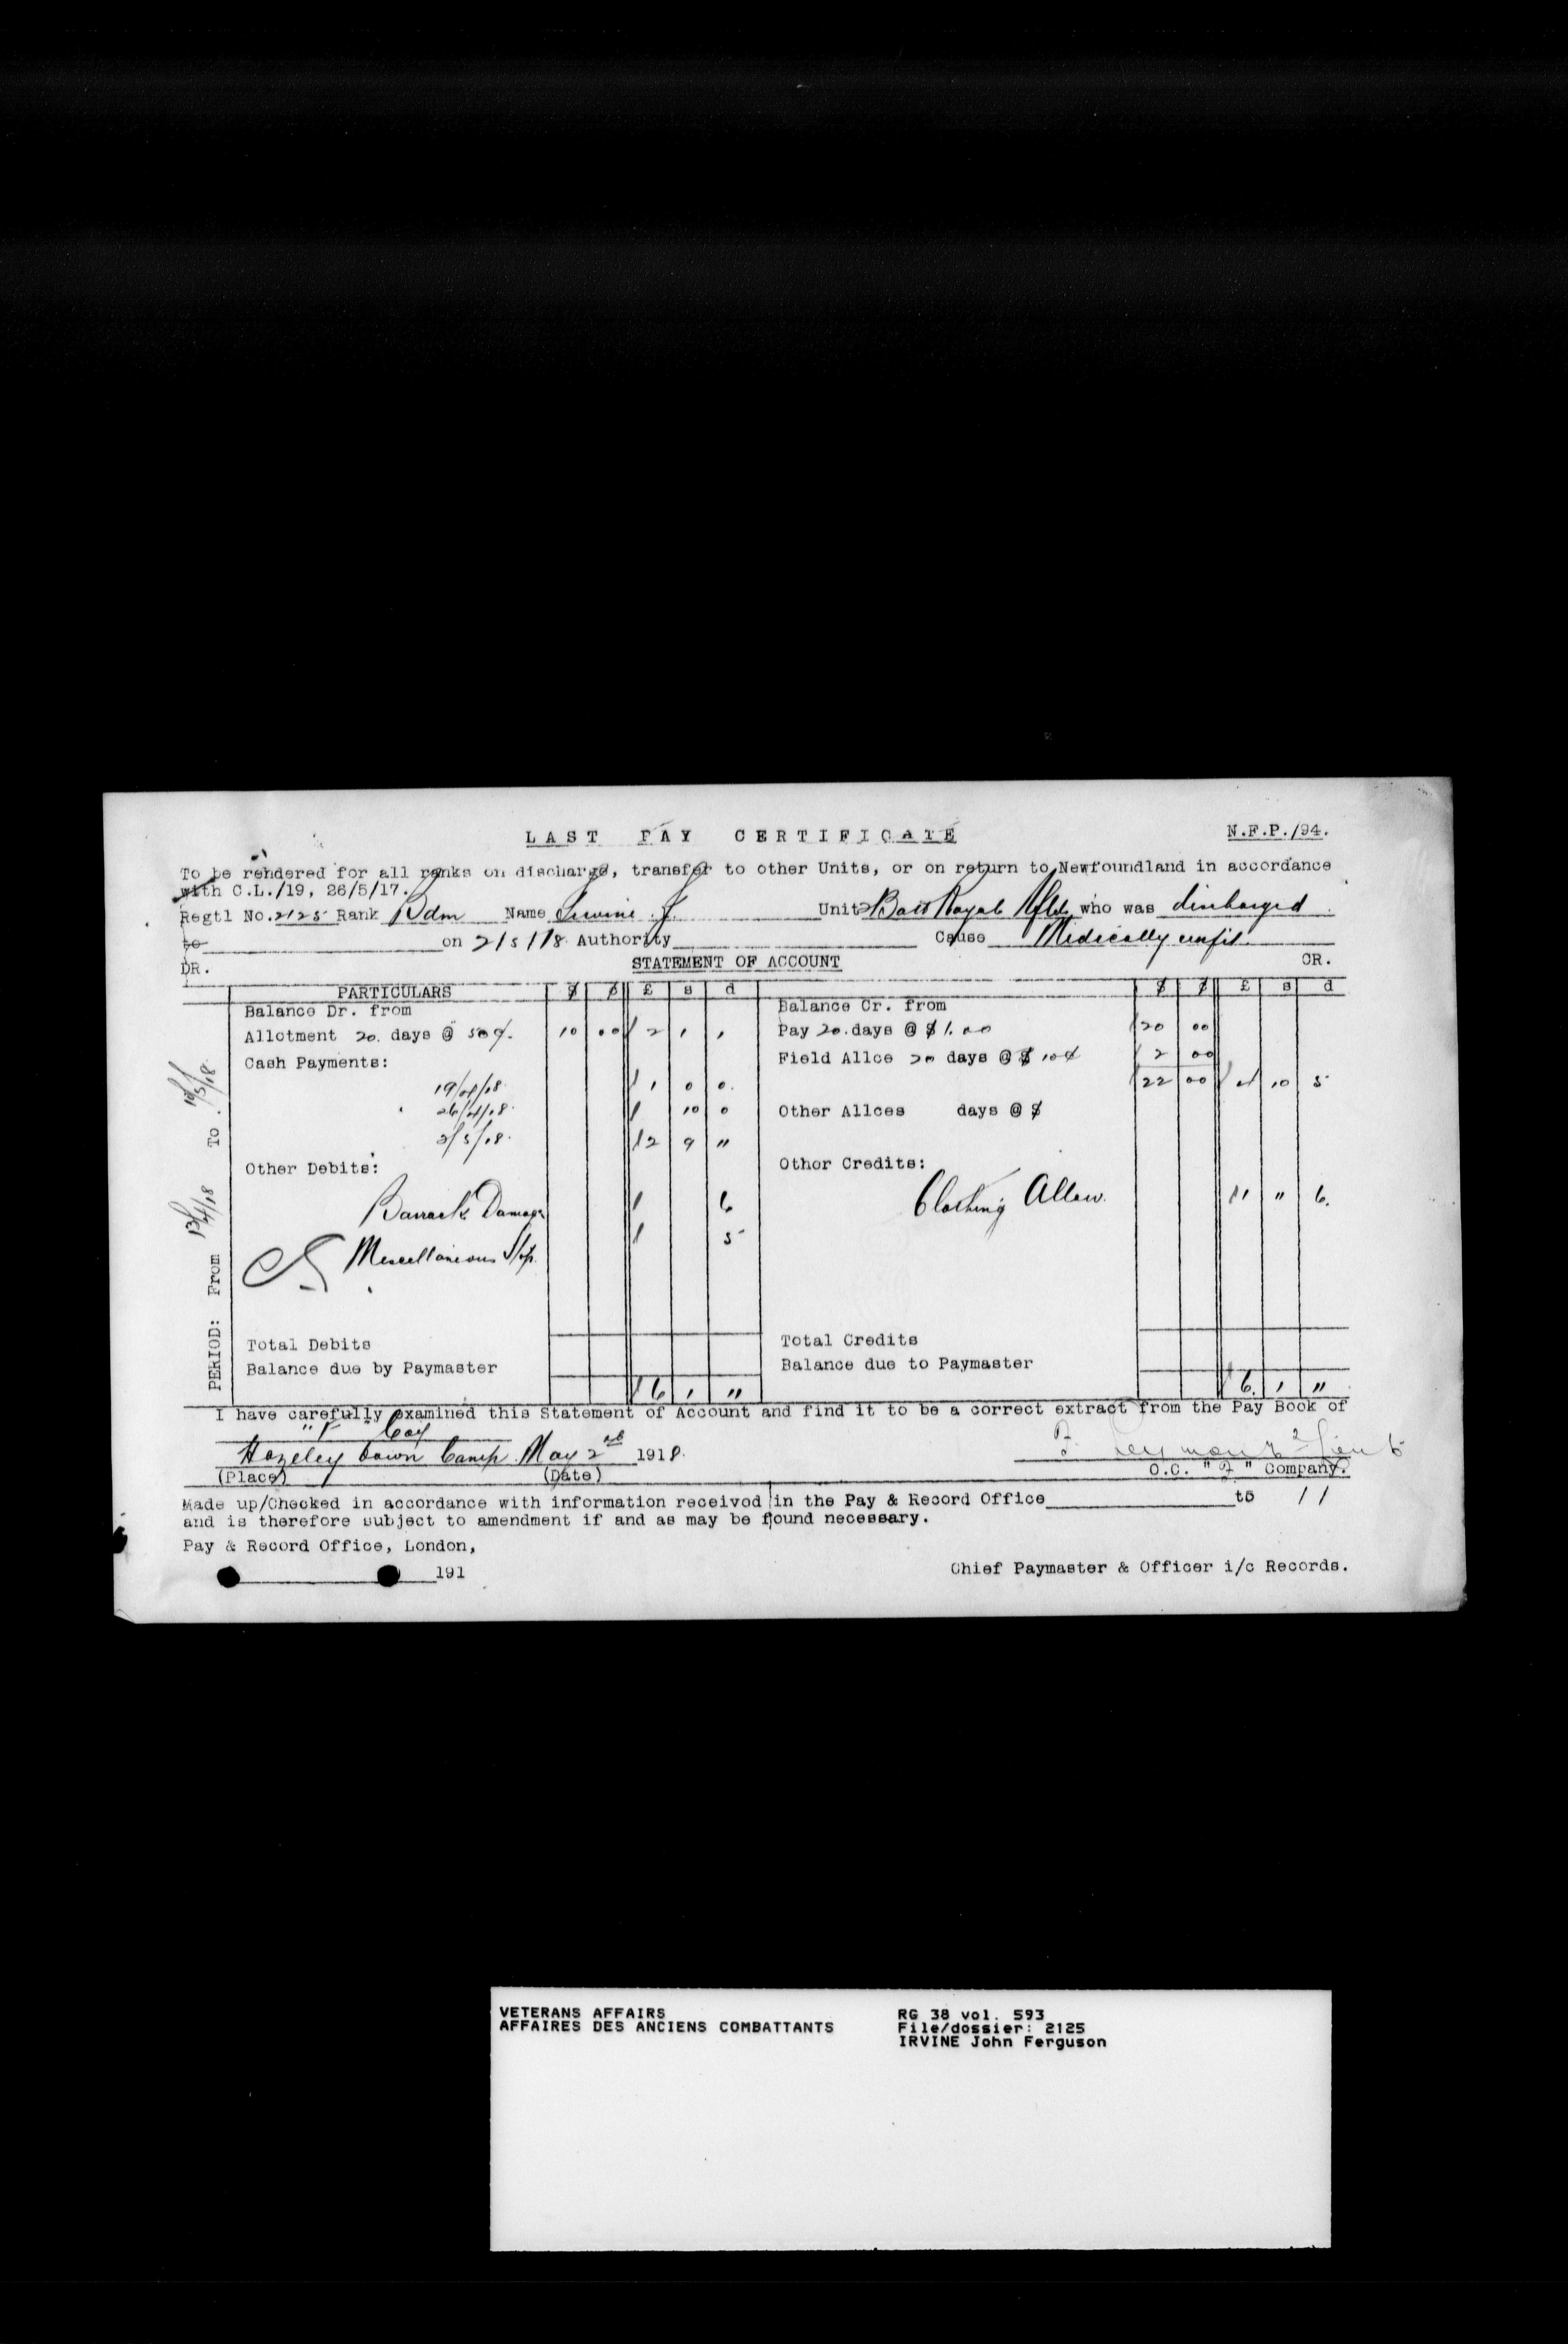 LAST PAY CERTIFICATE
N.F.P./94.
To be rendered for all ranks on discharge, transfer to other Units, or on return to Newfoundland in accordance
with C.L./19, 26/5/17.
Regtl No. 2125 Rank Bdm Name Irvine J. Unit 2 Batt Royal Nfld who was discharged
to on 2/5/18 Authority Cause Medically unfit.
DR. STATEMENT OF ACCOUNT CR.
PARTICULARS $ ¢ £ s d $ ¢ £ s d
Balance Dr. from Balance Cr. from
Allotment 20. days @ 50¢. 10 00 2 1 1 Pay 20. days @ $ 1.00 20 00
Cash Payments: Field Allce 20 days @ $ 10¢ 2 00
19/4/18. 1 0 0. 22 00 4 10 5
26/4/18. 10 0 Other Allces days @ $
2/5/18. 2 9 "
Other Debits: Othor Credits:
Barrack Damage 6 Clothing Allow. 1 " 6.
Miscellaneous Stp. 5
Total Debits Total Credits
Balance due by Paymaster Balance due to Paymaster
6 1 " 6. 1 "
PERIOD: From 13/4/18 To
I have carefully examined this Statement of Account and find it to be a correct extract from the Pay Book of
"F" Coy
Hazeley Down Camp. May 2nd 1918.
2 Lieut
(Place) (Date) O.C. "F" Company.
Made up/Checked in accordance with information received in the Pay & Record Office to 11
and is therefore subject to amendment if and as may be found necessary.
Pay & Record Office, London,
191
Chief Paymaster & Officer i/c Records.
VETERANS AFFAIRS RG 38 vol. 593
AFFAIRES DES ANCIENS COMBATTANTS File/dossier: 2125
IRVINE John Ferguson